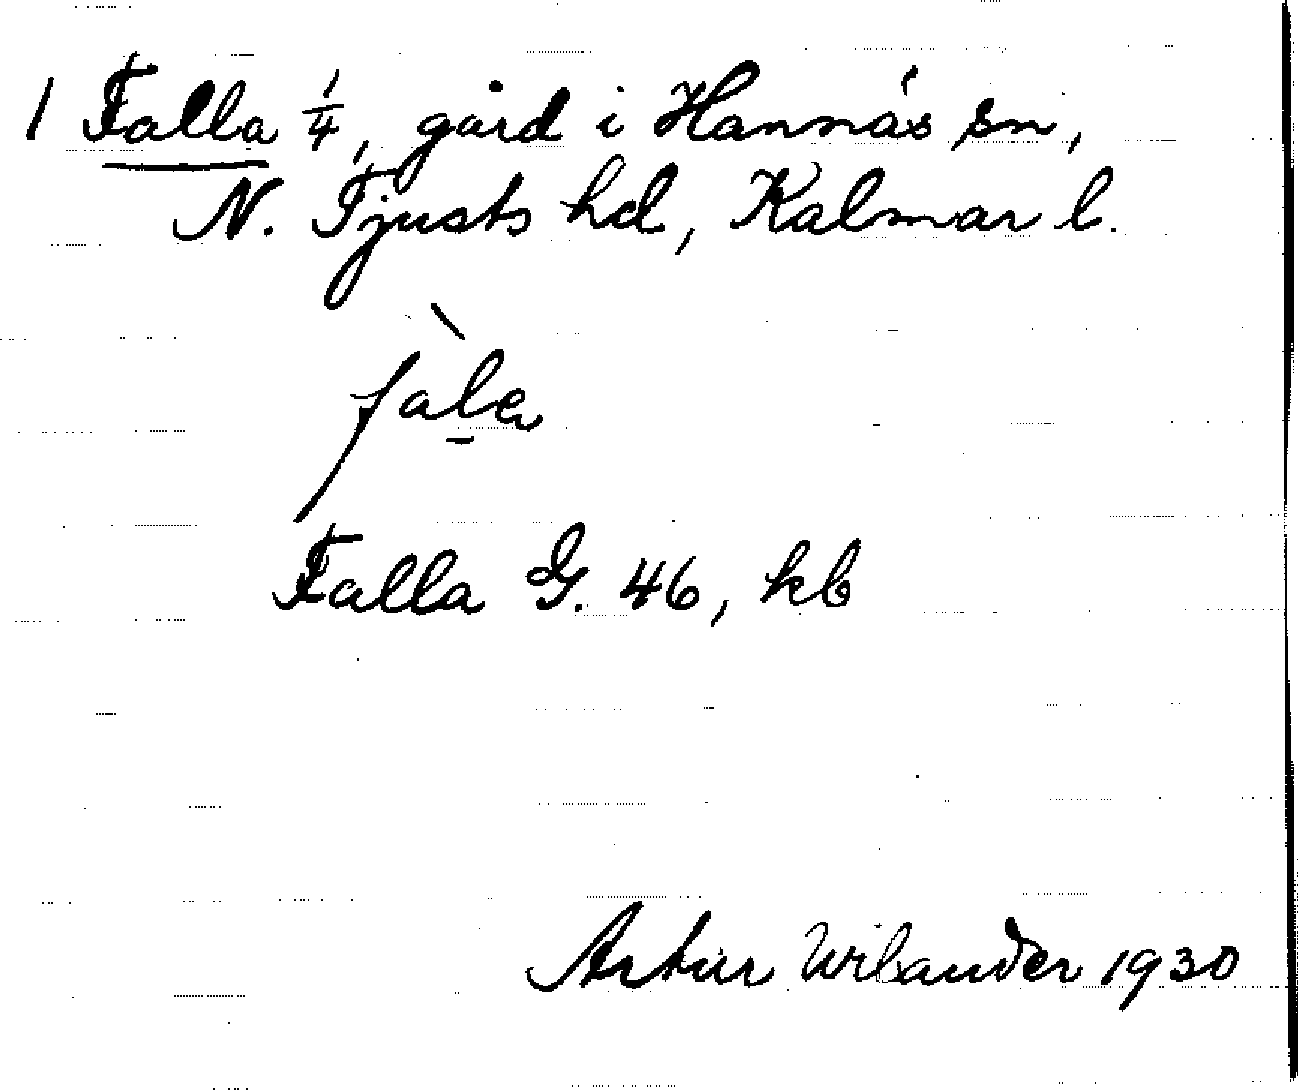 1 Falla 1/4, gård i Hannäs sn,
N. Tjusts hd, Kalmar l.
fàl̠a
Falla G. 46, kb
Artur Wilander 1930